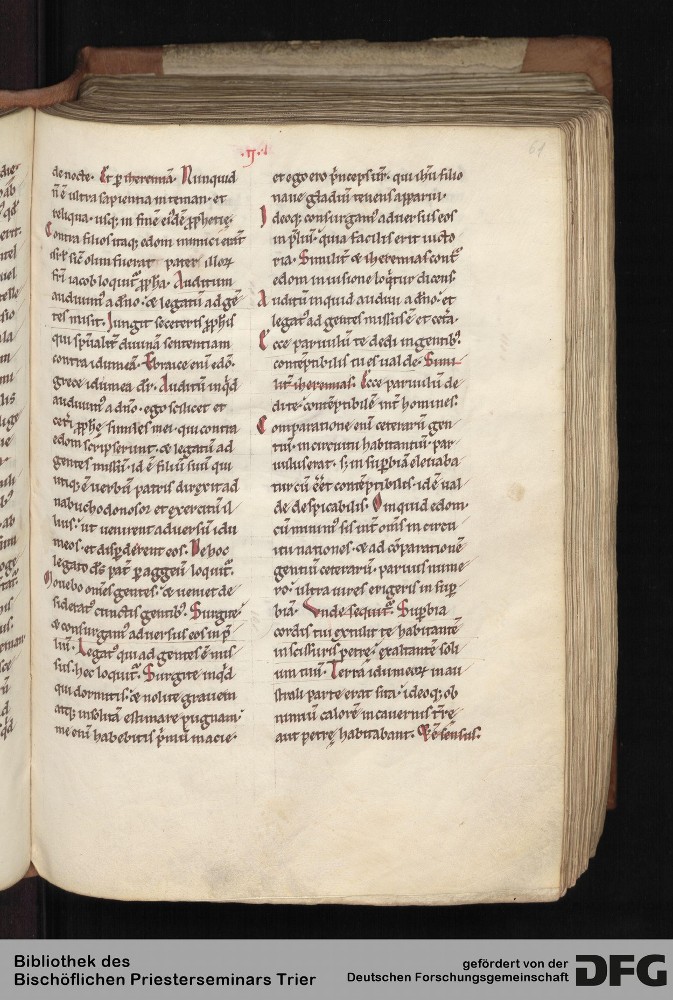 .ij.
61
de nocte. Et p iheremiā. Nunquid
nē ultra sapientia in teman. et
reliqua. usq; in finē eiusdē pphetię.
Contra filios itaq; edom inimici
fuerat pater illoꝝ
iacob loquit ppha. Auditum
audiuim a dno. & legatū ad gē
tes misit. Iungit se ceteris pphis
qui spualit diuinā sententiam
contra idumeā. Ebraice eni edō.
grece idumea dr. Auditū inqd
audiuim a dno. ego scilicet et
ceti pphę similes mei. qui contra
edom scripserunt. & legatū ad
gentes missū. id ē filiū suū qui
utiq; ē uerbū patris direxit ad
nabuchodonosor et exercitū il
lius. ut uenirent aduersū idu
meos. et disperderent eos. De hoc
legato ds pat p aggeū loquit.
Mouebo oms gentes. & ueniet de
siderat cunctis gentib. Surgite
& consurgam aduersus eos in p
liū. Legat qui ad gentes ē mis
sus. hec loquit. Surgite inqd
qui dormitis. & nolite grauem
atq; insolitā estimare pugnam.
me eni habebitis pmū in acie.
et ego ero pnceps ur. qui ihu filio
naue gladiū tenens apparui.
Ideoq; consurgam aduersus eos
in pliū. quia facilis erit uicto
ria. Similit & iheremias cont
edom in uisione loqtur dicens.
Auditū inquid audiui a dno. et
legat ad gentes missus ē et ceta.
Ecce paruulū te dedi in gentib.
conteptibilis tu es ualde. Simi
lit iheremias. Ecce paruulū de
di te. conteptibilē int homines.
Comparatione eni ceterarū gen
tiū. in circuitu habitantiū. par
uulus erat. s; in supbiā eleuaba
tur cū eēt conteptibilis. id ē ual
de despicabilis. O inquid edom.
cū minim sis int oms in circu
itu nationes. & ad coparationē
gentiū ceterarū. paruus nume
ro. ultra uires erigeris in sup
biā. Vnde sequit. Supbia
cordis tui extulit te habitantē
in scissuris petrę. exaltantē soli
um tuū. Terra idumeoꝝ in au
strali parte erat sita. ideoq; ob
nimiū calorē in cauernis trę
aut petrę habitabant. Est sensus.
Bibliothek des
Bischöflichen Priesterseminars Trier
gefördert von der
Deutschen Forschungsgemeinschaft
DFG